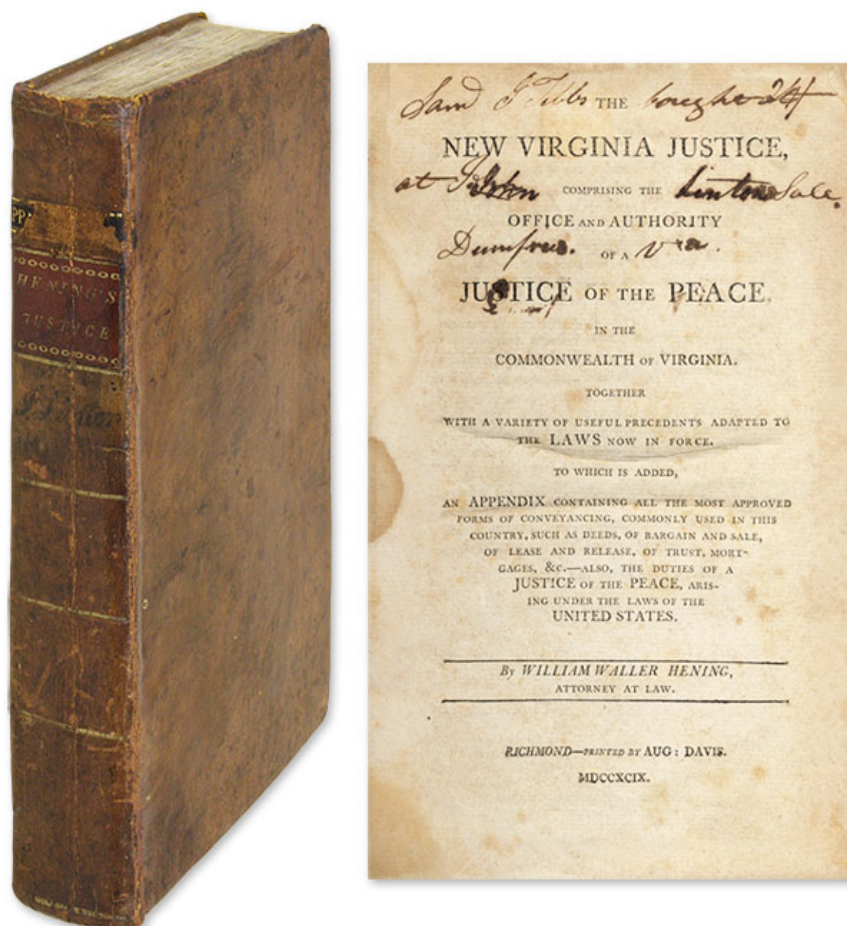 HENING'S
JUSTICE
THE bought
NEW VIRGINIA JUSTICE,
at John COMPRISING THE Linton Sale.
OFFICE AND AUTHORITY
Dumfries. OF A Va.
JUSTICE OF THE PEACE,
IN THE
COMMONWEALTH OF VIRGINIA.
TOGETHER
WITH A VARIETY OF USEFUL PRECEDENTS ADAPTED TO
THE LAWS NOW IN FORCE.
TO WHICH IS ADDED,
AN APPENDIX CONTAINING ALL THE MOST APPROVED
FORMS OF CONVEYANCING, COMMONLY USED IN THIS
COUNTRY, SUCH AS DEEDS, OF BARGAIN AND SALE,
OF LEASE AND RELEASE, OF TRUST, MORT-
GAGES, &c.—ALSO, THE DUTIES OF A
JUSTICE OF THE PEACE, ARIS-
ING UNDER THE LAWS OF THE
UNITED STATES.
By WILLIAM WALLER HENING,
ATTORNEY AT LAW.
RICHMOND—PRINTED BY AUG: DAVIS.
MDCCXCIX.